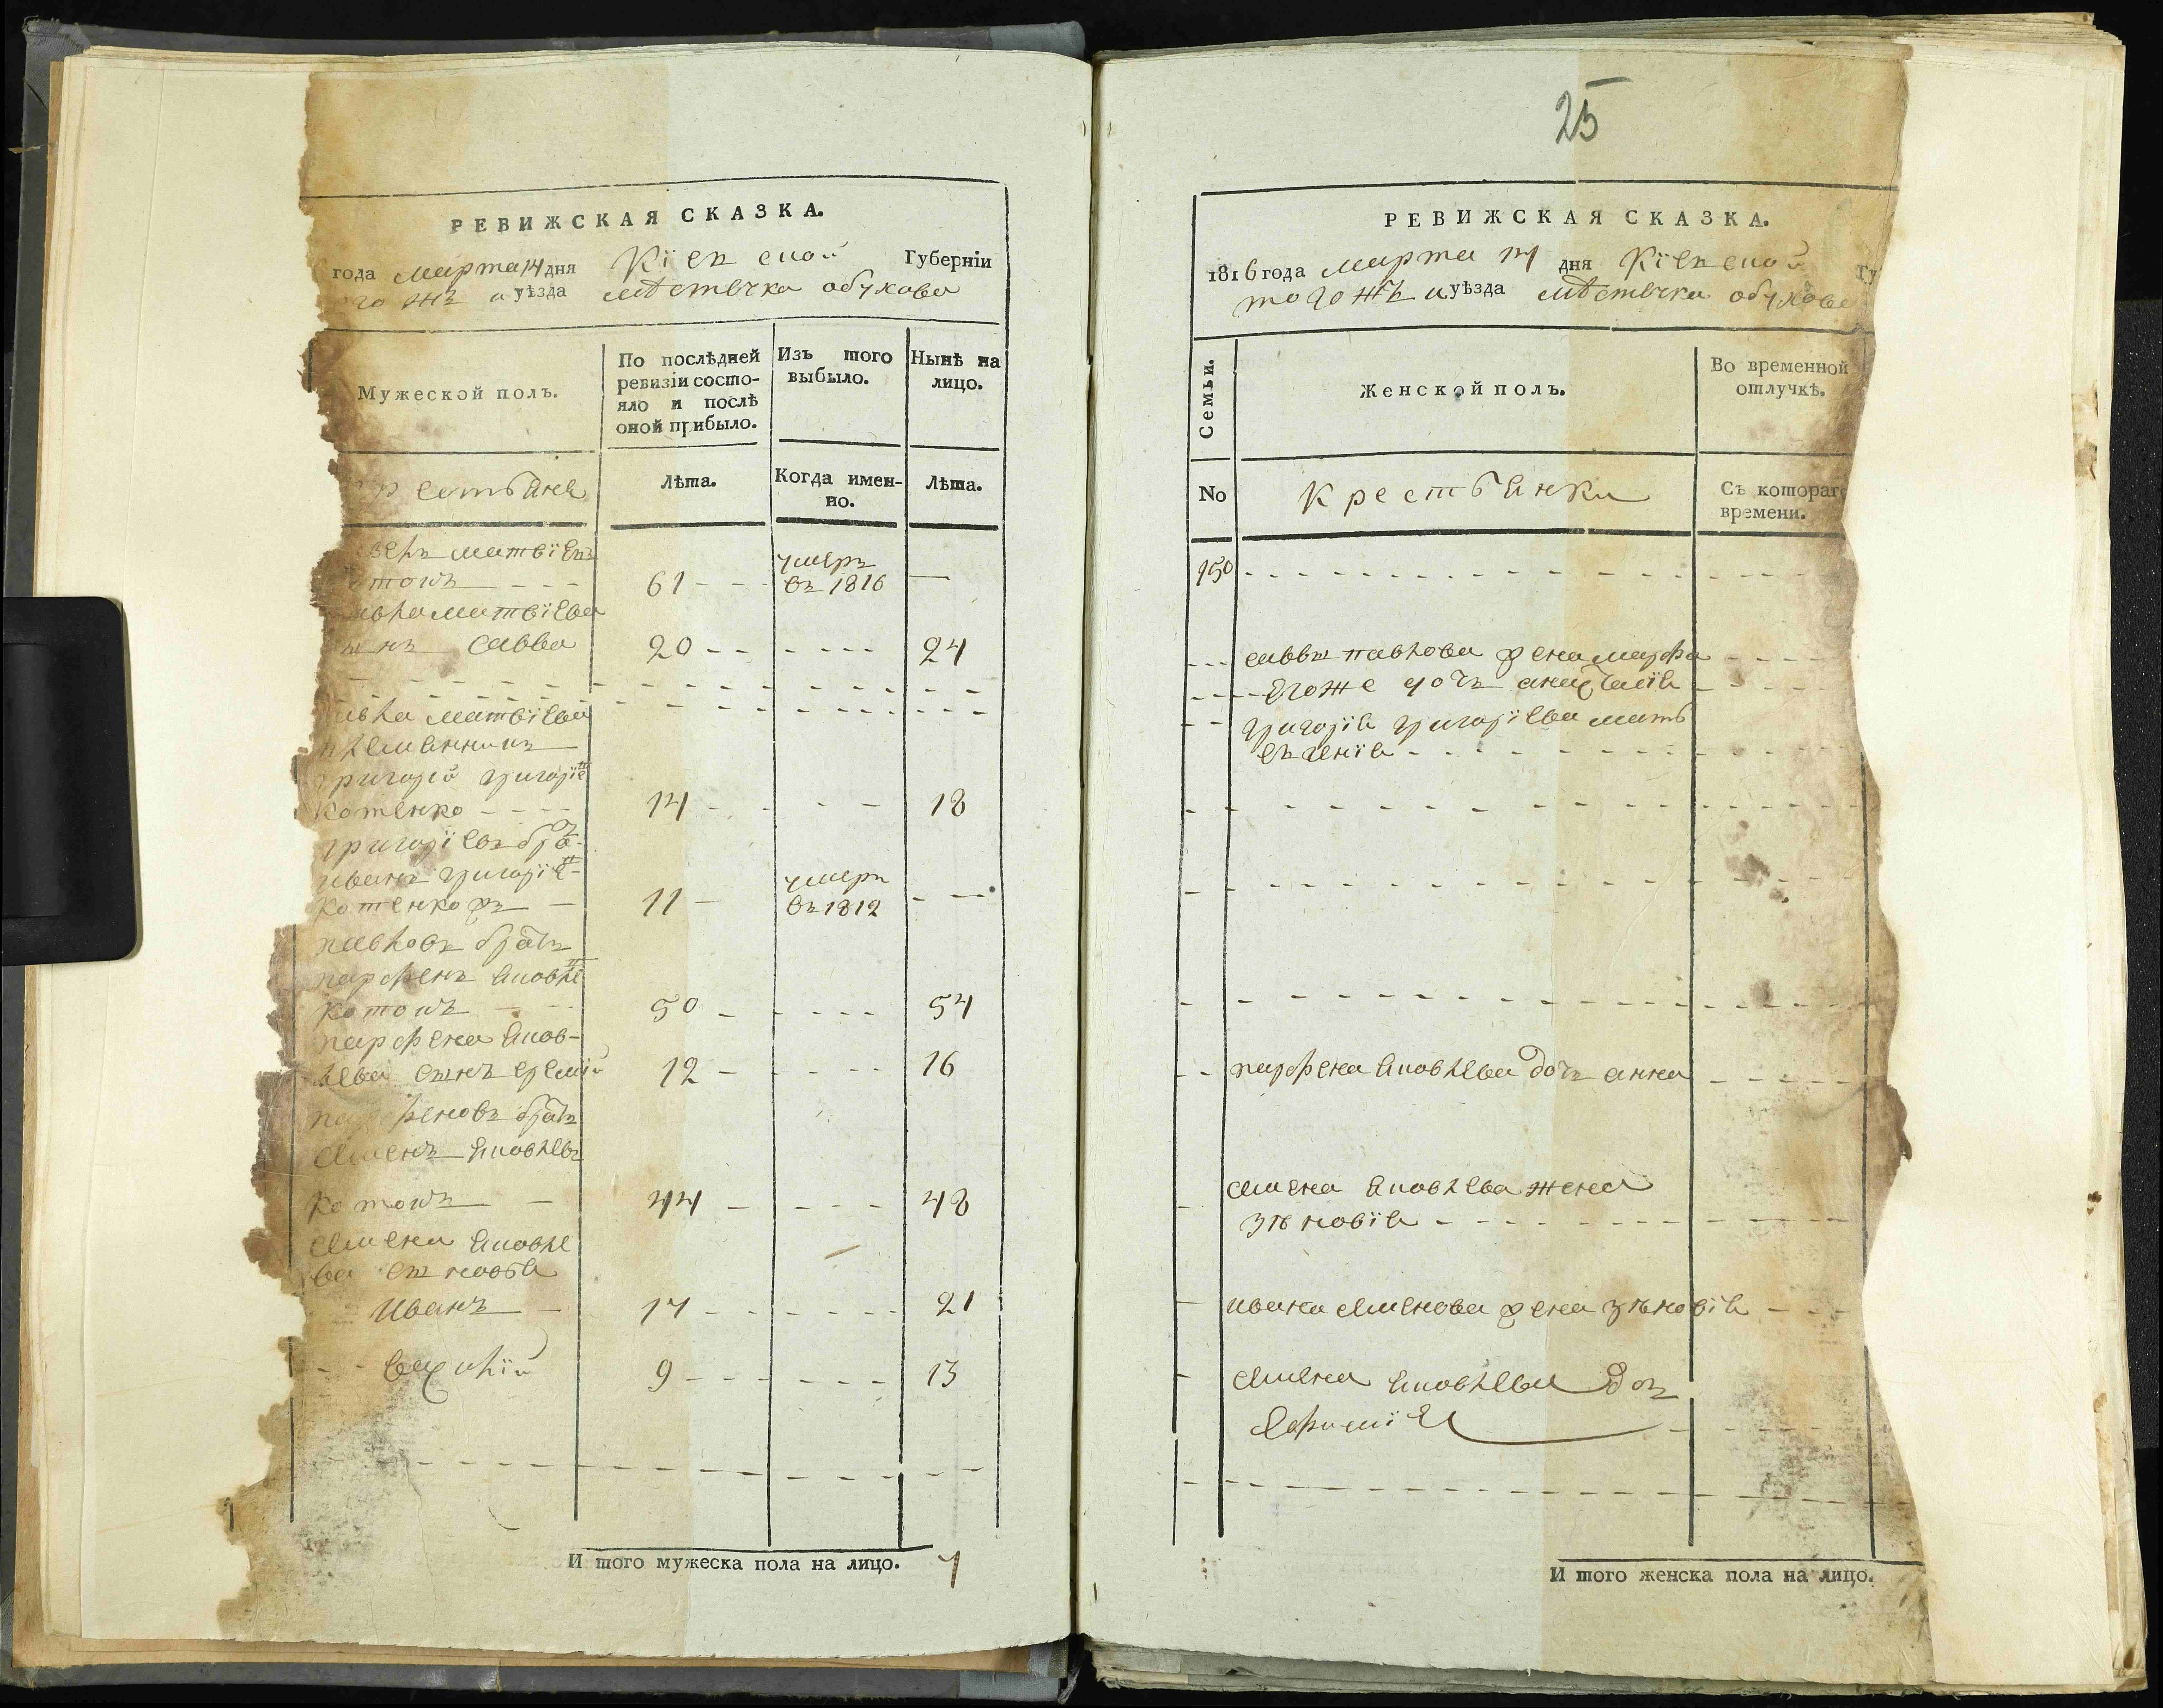 РЕВИЖСКАЯ СКАЗКА.
года марта 14 дня Кіевской Губерніи
го жъ уѣзда мѣстечка обухова
Мужеской полъ.
По послѣдней
ревизіи состо-
яло и послѣ
оной прибыло.
Изъ того
выбыло.
Нынѣ на
лицо.
рестьяне
Лѣта.
Когда имен-
но.
Лѣта.
матвіевъ
61 умеръ въ 1816
матвіева
савва 20 24
матвіева
племянникъ
григорій григоріевъ
котенко 14 18
григоріевъ братъ
иванъ григоріевъ
котенко жъ 11 умеръ въ 1812
павловъ братъ
парфенъ яковле
котовъ 50 54
парфена яков-
лева сынъ еремій 12 16
парфеновъ братъ
семенъ яковлевъ
котовъ 44 48
семена яковле
ва сыновья
иванъ 17 21
9 13
И того мужеска пола на лицо. 7
25
РЕВИЖСКАЯ СКАЗКА.
1816 года марта 14 дня Кіевской Гу
тогожъ уѣзда мѣстечка обухова
Семьи.
Женской полъ.
Во временной
отлучкѣ.
No
Крестьянки
Съ котораго
времени.
150
саввы павлова жена марфа
егоже дочь
григорія григоріева мать
евгенія
парфена яковлева дочь анна
семена яковлева жена
зѣновія
ивана семенова жена зѣновія
семена яковлева дочь
Ефимія
И того женска пола на лицо.